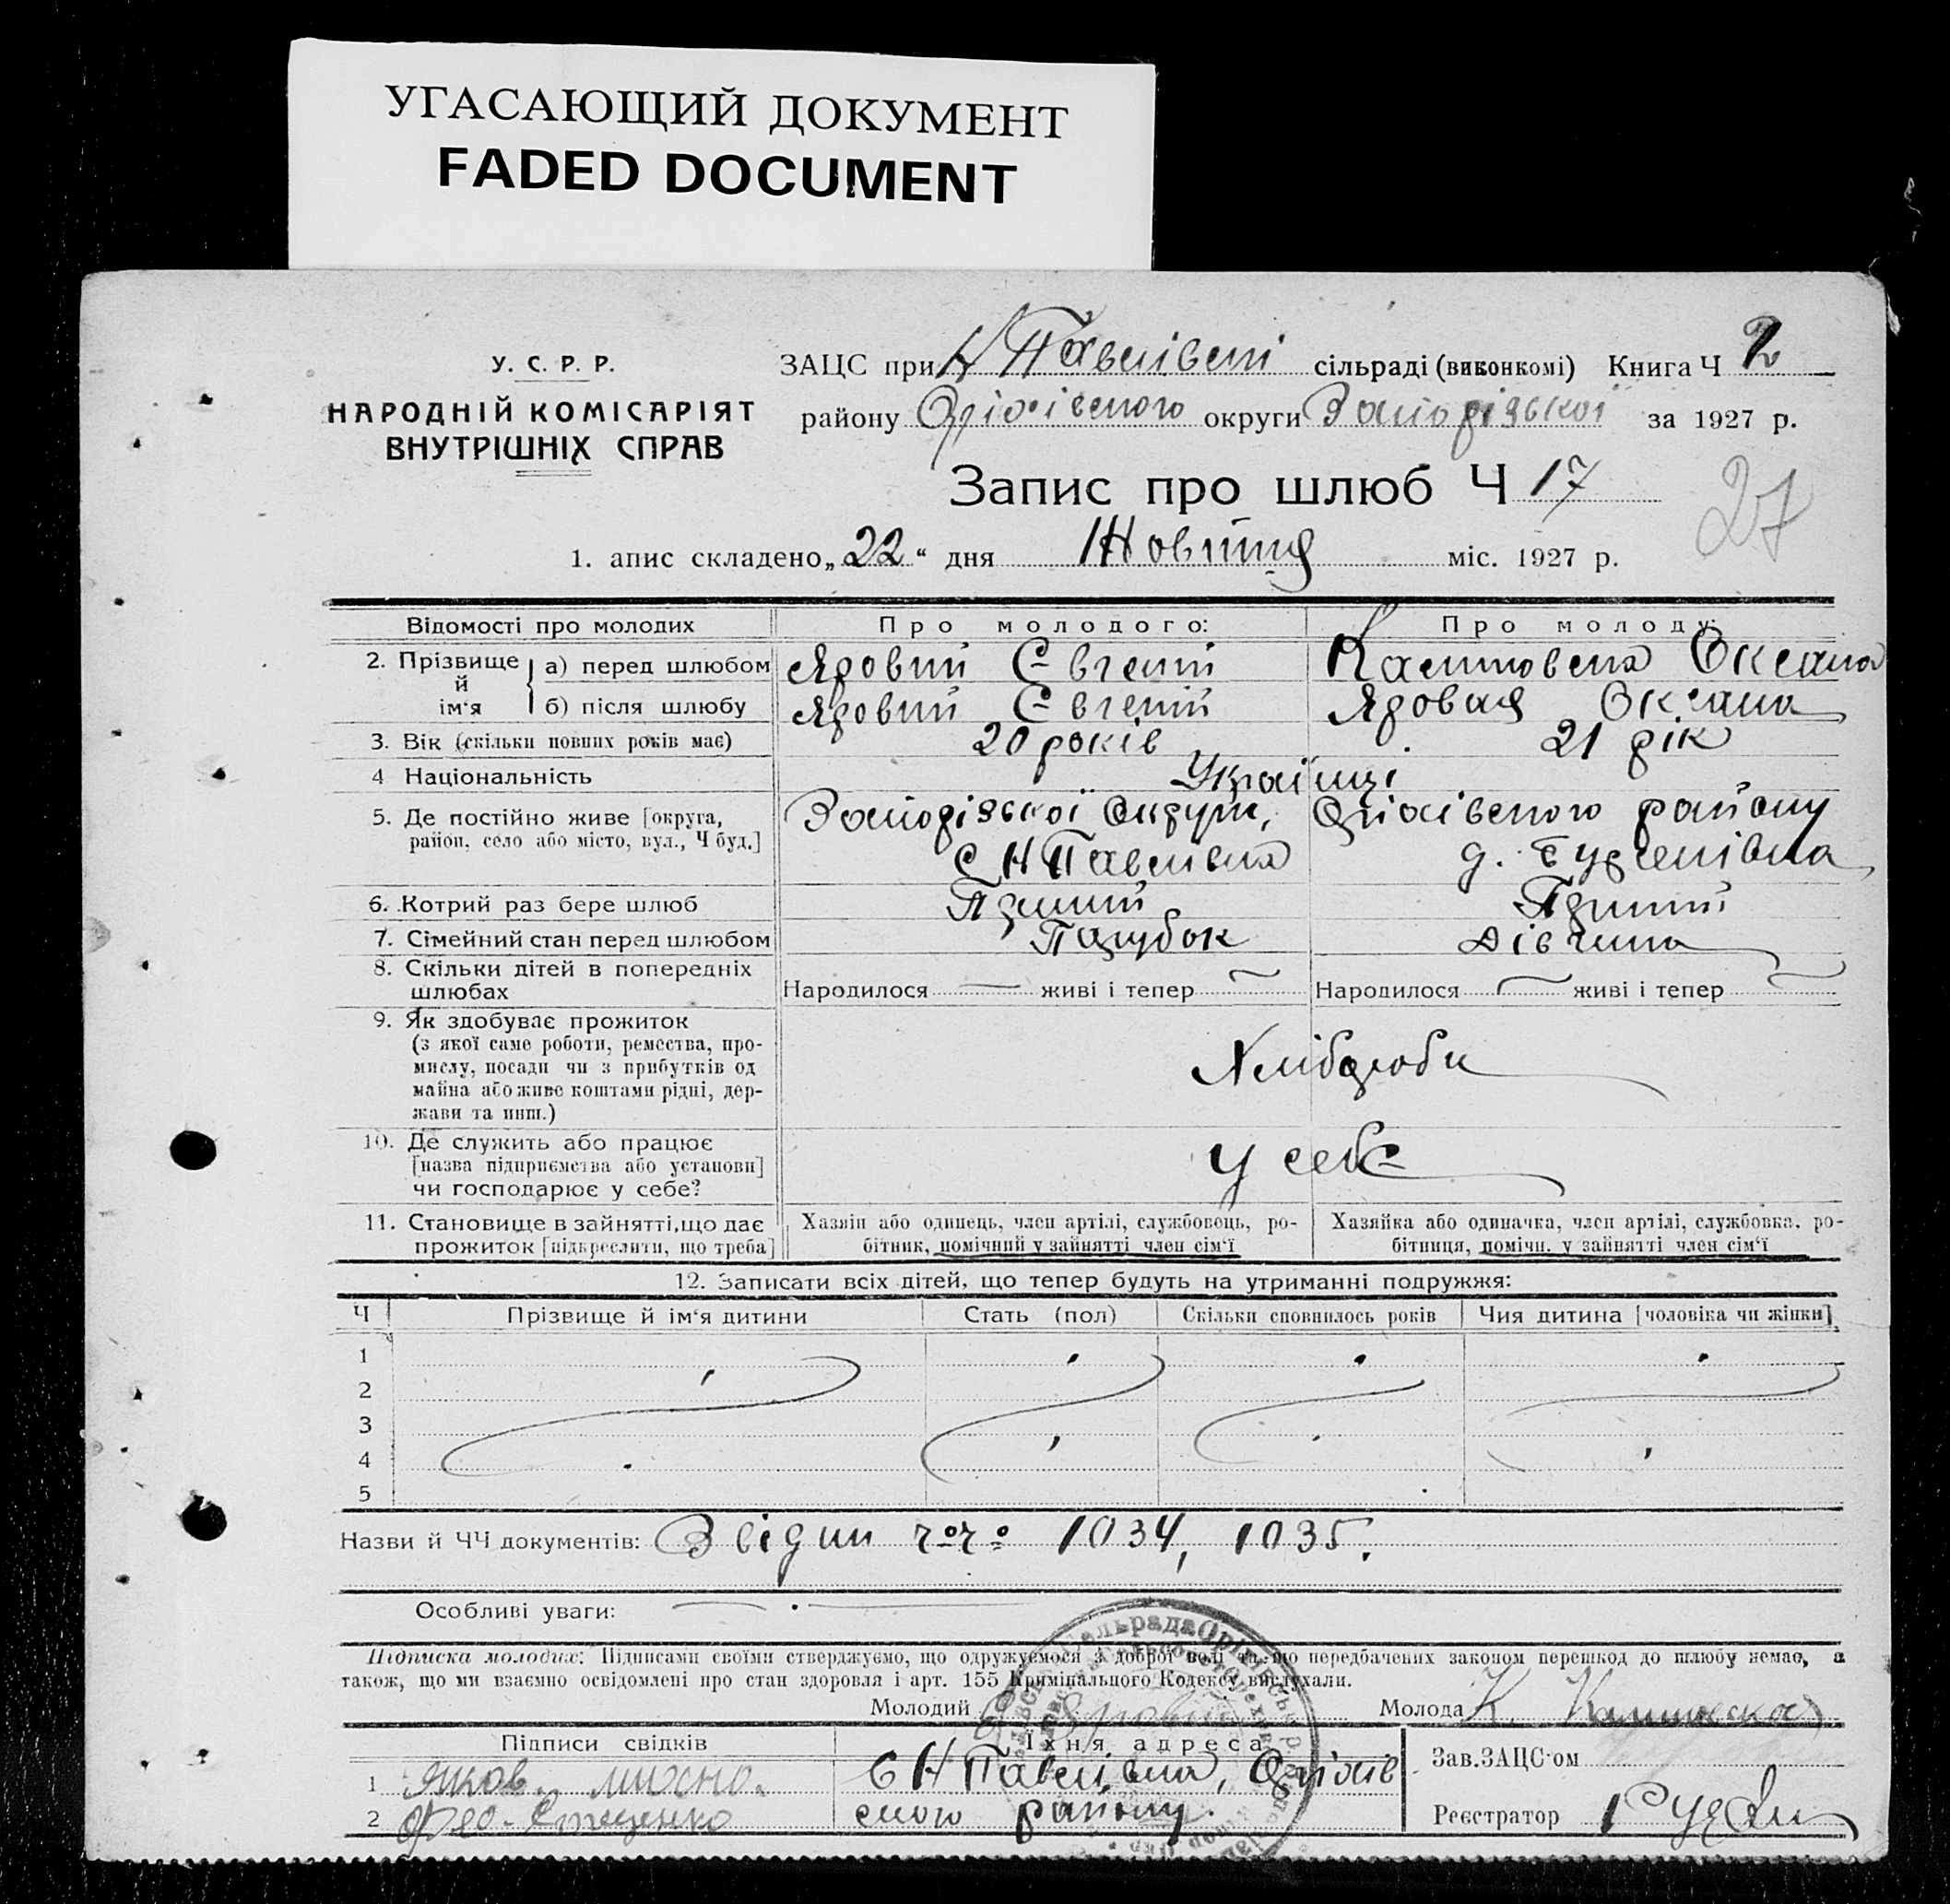 УГАСАЮЩИЙ ДОКУМЕНТ
FADED DOCUMENT
У. С. Р. Р.
НАРОДНІЙ КОМІСАРІЯТ
ВНУТРІШНІХ СПРАВ
ЗАЦС при Н Павлівські сільраді (виконкомі) Книга Ч 2
району Оріхівського округи Запорізької за 1927 р.
Запис про шлюб Ч 17
27
1. апис складено „22“ дня Жовтня міс. 1927 р.
Відомості про молодих Про молодого: Про молоду:
2. Прізвище й ім‘я
а) перед шлюбом Яровий Євгеній Оксана
б) після шлюбу Яровий Євгеній Яровая Оксана
3. Вік (скільки повних років має) 20 років 21 рік
4 Національність Українці
5. Де постійно живе [округа, Запорізької Округи, Оріхівського району
район, село або місто, вул., Ч буд.] С Н Павлівка д.
6. Котрий раз бере шлюб Перший Перший
7. Сімейний стан перед шлюбом Парубок Дівчина
8. Скільки дітей в попередніх
шлюбах Народилося — живі і тепер — Народилося — живі і тепер —
9. Як здобуває прожиток
(з якої саме роботи, ремества, про-
мислу, посади чи з прибутків од
майна або живе коштами рідні, дер-
жави та инш.) Хлібороби
10. Де служить або працює
[назва підприємства або установи] У себе
чи господарює у себе?
11. Становище в зайнятті, що дає Хазяїн або одинець, член артілі, службовець, ро- Хазяйка або одиначка, член артілі, службовка, ро-
прожиток [підкреслити, що треба] бітник, помічний у зайнятті член сім‘ї бітниця, помічн. у зайнятті член сім‘ї
12. Записати всіх дітей, що тепер будуть на утриманні подружжя:
Ч Прізвище й ім‘я дитини Стать (пол) Скільки сповнилось років Чия дитина [чоловіка чи жінки]
1
2
3
4
5
Назви й ЧЧ документів: Звідки 1034, 1035.
Особливі уваги: —
Підписка молодих: Підписами своїми стверджуємо, що одружуємося з доброї волі та що передбачених законом перешкод до шлюбу немає, а
також, що ми взаємно освідомлені про стан здоровля і арт. 155 Кримінального Кодексу вислухали.
Молодий Яровий Молода К.
Підписи свідків Їхня адреса Зав. ЗАЦС‘ом
1 Яков С Н Павлівка, Оріхів
2 Стеценко ського району. Реєстратор